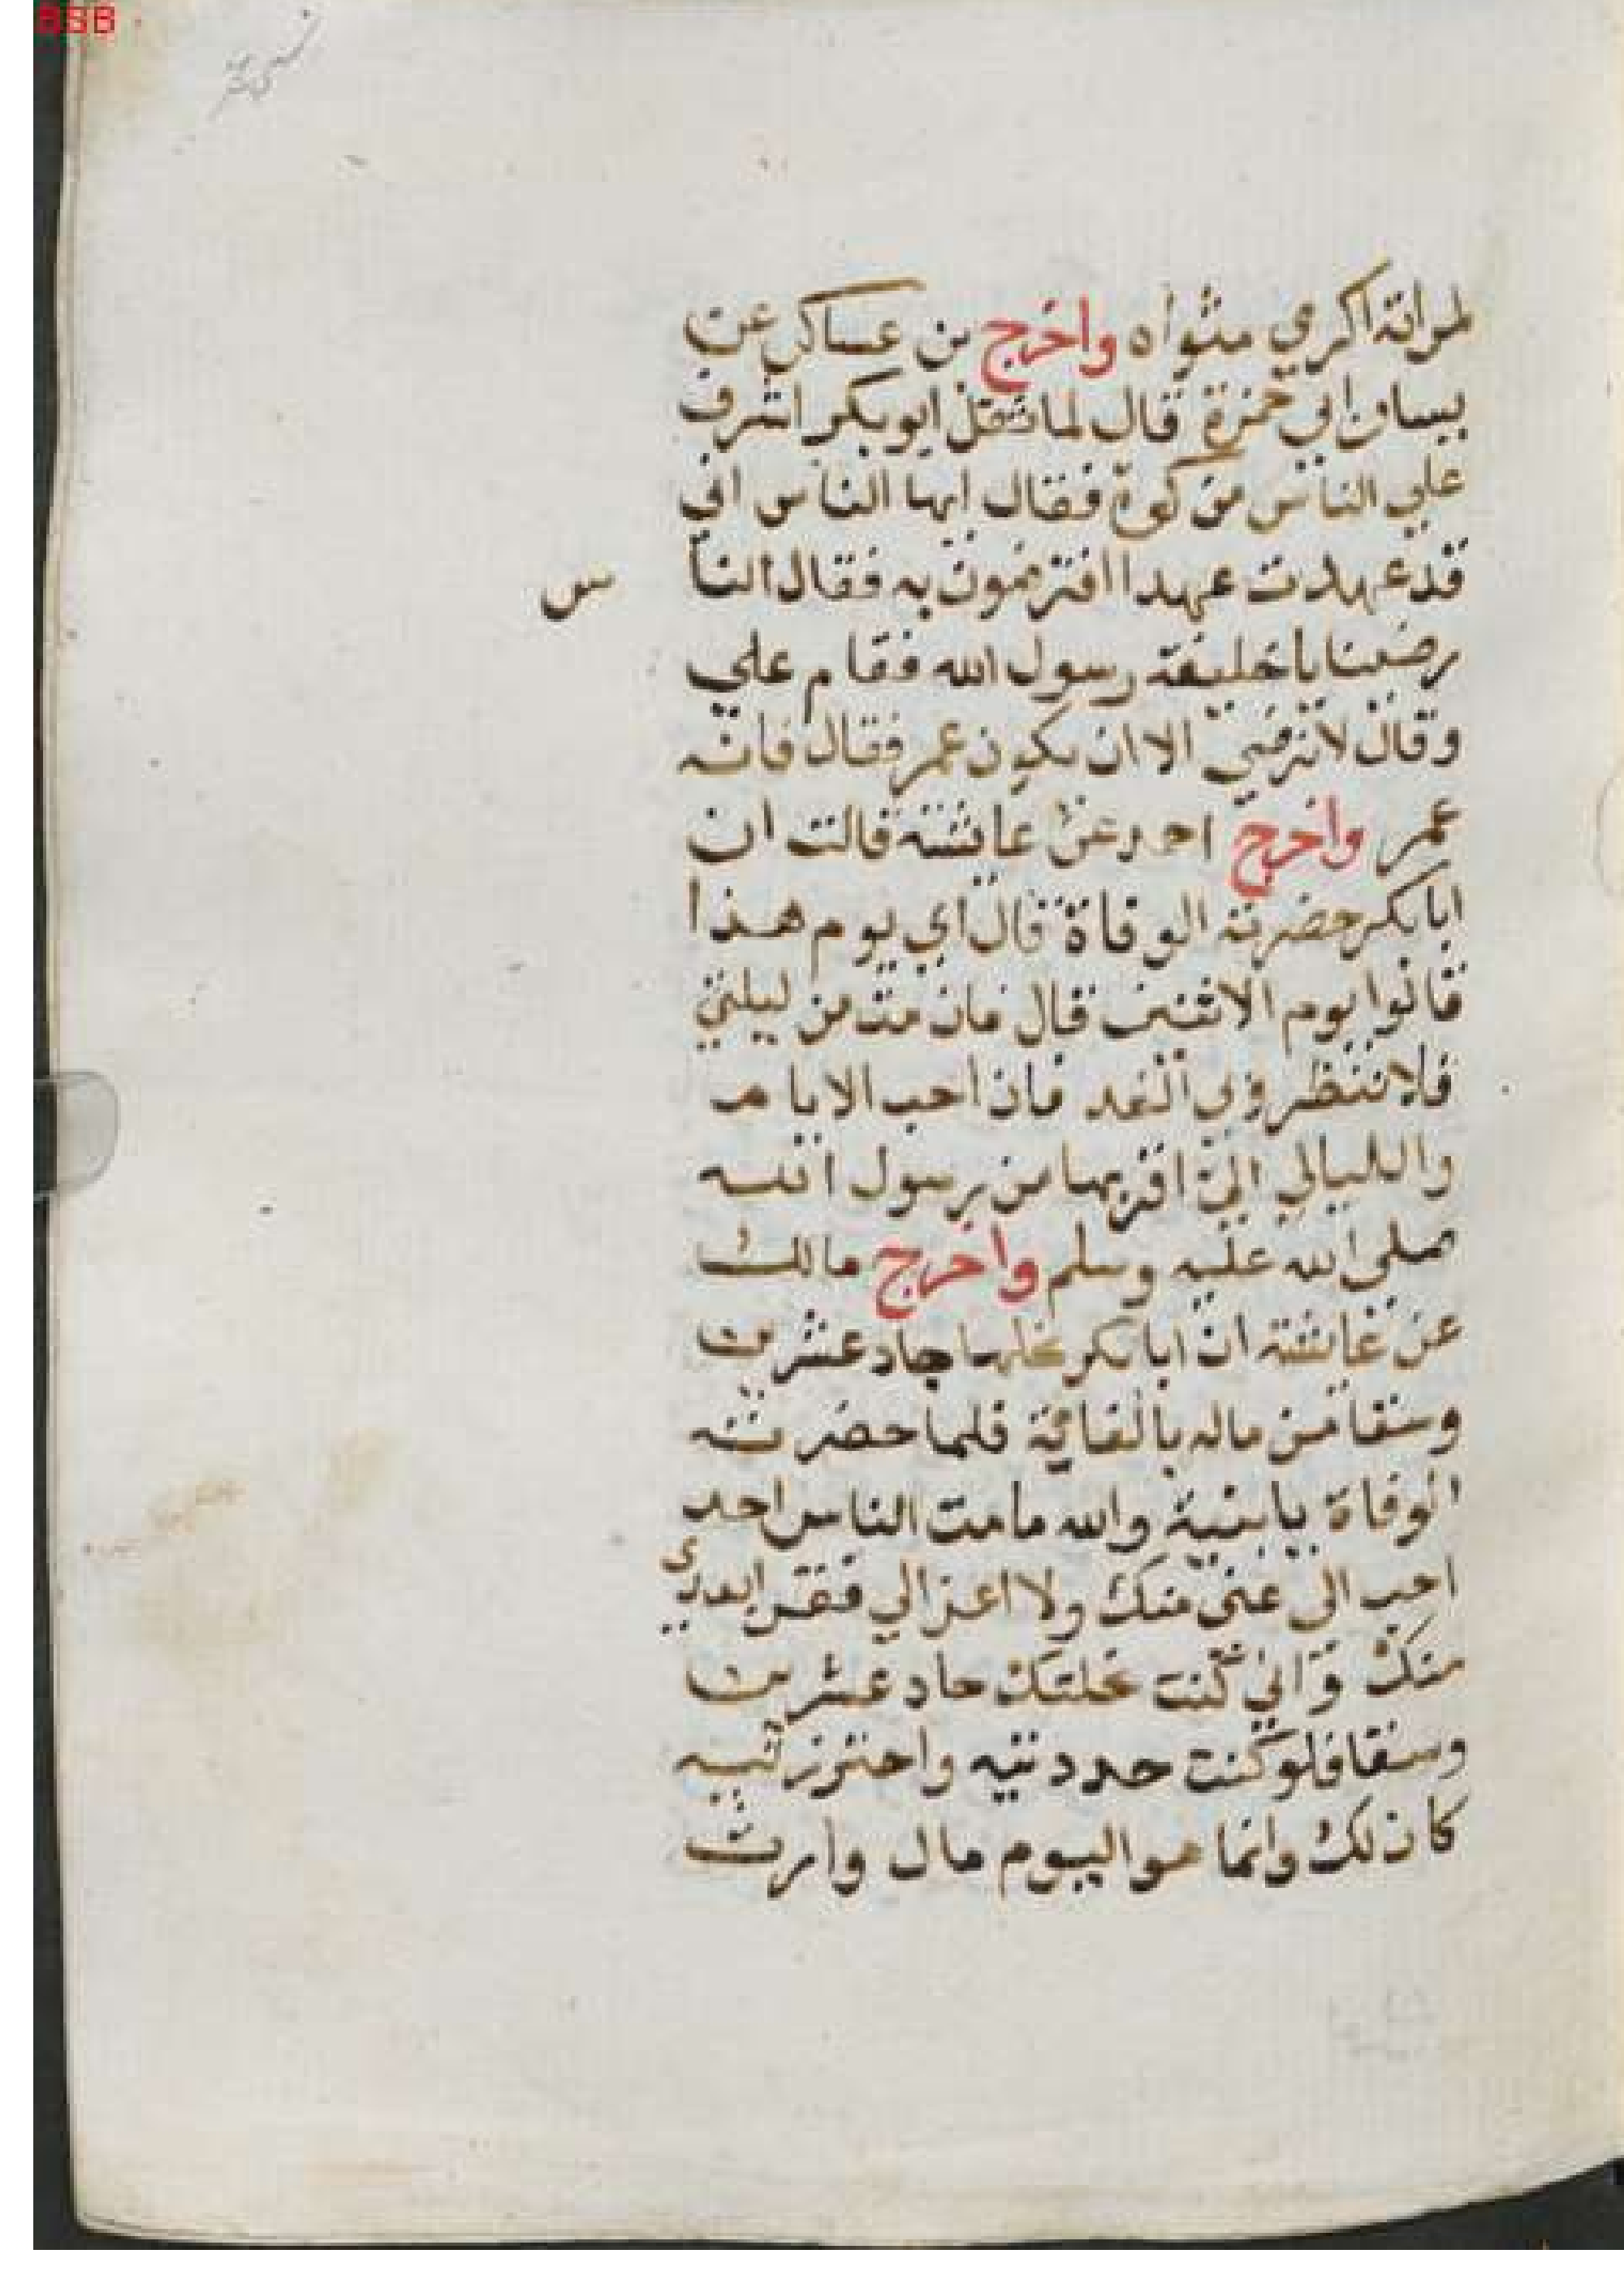 لمراته اكرمي مثواه واخرج بن عساكر عن
يسار ابي حمزة قال لما ثقل ابو بكر اشرف
علي الناس من كوة فقال ايها الناس اني
قد عهدت عهدا افترضون به فقال الناس
رضينا يا خليفة رسول الله فقام علي
وقال لا نرضي الا ان يكون عمر فقال فانه
عمر واخرج احمد عن عائشة قالت ان
ابا بكر حضرته الوفاة قال اي يوم هذا
قالوا يوم الاثنين قال فان مت من ليلتي
فلا تنتظروني الغد فان احب الايام
والليالي الي اقربها من رسول الله
صلى الله عليه وسلم واخرج مالك
عن عائشة ان ابا بكر نحلها جاد عشرين
وسقا من ماله بالغابة فلما حضرته
الوفاة يا بنية والله ما من الناس احد
احب الى غنى منك ولا اعز الي فقرا بعدي
منك واني كنت نحلتك جاد عشرين
وسقا فلو كنت جددتيه واحترزتيه
كان لك وانما هو اليوم مال وارث